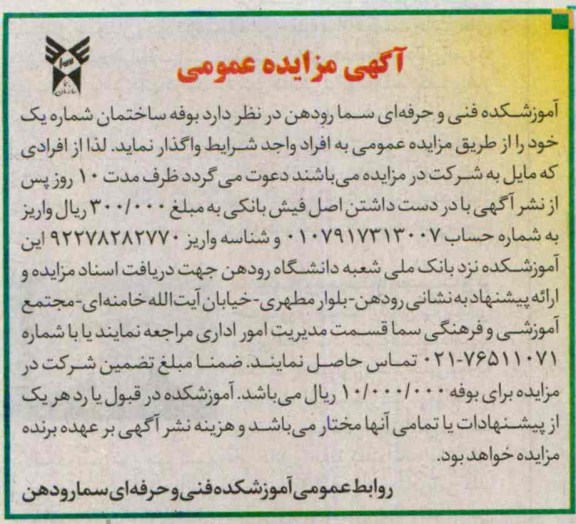 آگهی مزایده عمومی
آموزشکده فنی و حرفه‌ای سما رودهن در نظر دارد بوفه ساختمان شماره یک
خود را از طریق مزایده عمومی به افراد واجد شرایط واگذار نماید. لذا از افرادی
که مایل به شرکت در مزایده می‌باشند دعوت می گردد ظرف مدت ۱۰ روز پس
از نشر آگهی با در دست داشتن اصل فیش بانکی به مبلغ ۳۰۰/۰۰۰ ریال واریز
به شماره حساب ۰۱۰۷۹۱۷۳۱۳۰۰۷ و شناسه واریز ۹۲۲۷۸۲۸۲۷۷۰ این
آموزشکده نزد بانک ملی شعبه دانشگاه رودهن جهت دریافت اسناد مزایده و
ارائه پیشنهاد به نشانی رودهن-بلوار مطهری-خیابان آیت‌الله خامنه‌ای-مجتمع
آموزشی و فرهنگی سما قسمت مدیریت امور اداری مراجعه نمایند یا با شماره
۰۲۱-۷۶۵۱۱۰۷۱ تماس حاصل نمایند. ضمنا مبلغ تضمین شرکت در
مزایده برای بوفه ۱۰/۰۰۰/۰۰۰ ریال می‌باشد. آموزشکده در قبول یا رد هر یک
از پیشنهادات یا تمامی آنها مختار می‌باشد و هزینه نشر آگهی بر عهده برنده
مزایده خواهد بود.
روابط عمومی آموزشکده فنی و حرفه‌ای سما رودهن